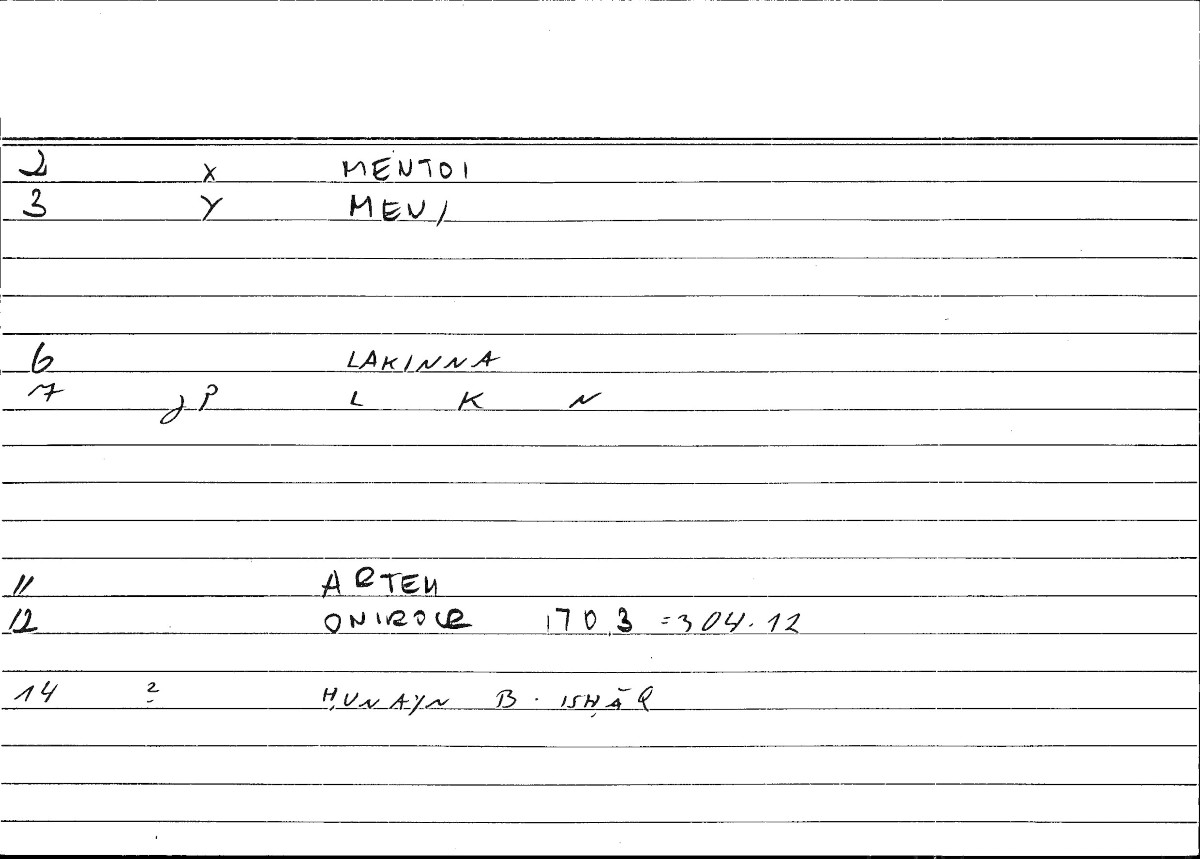 2 X MENTOI
3 Y MEN/
6 LAKINNA
7 jP L K N
11 ARTEM
12 ONIROCR 170,3 =304.12
14 2 ḤUNAYN B. ISḤĀQ